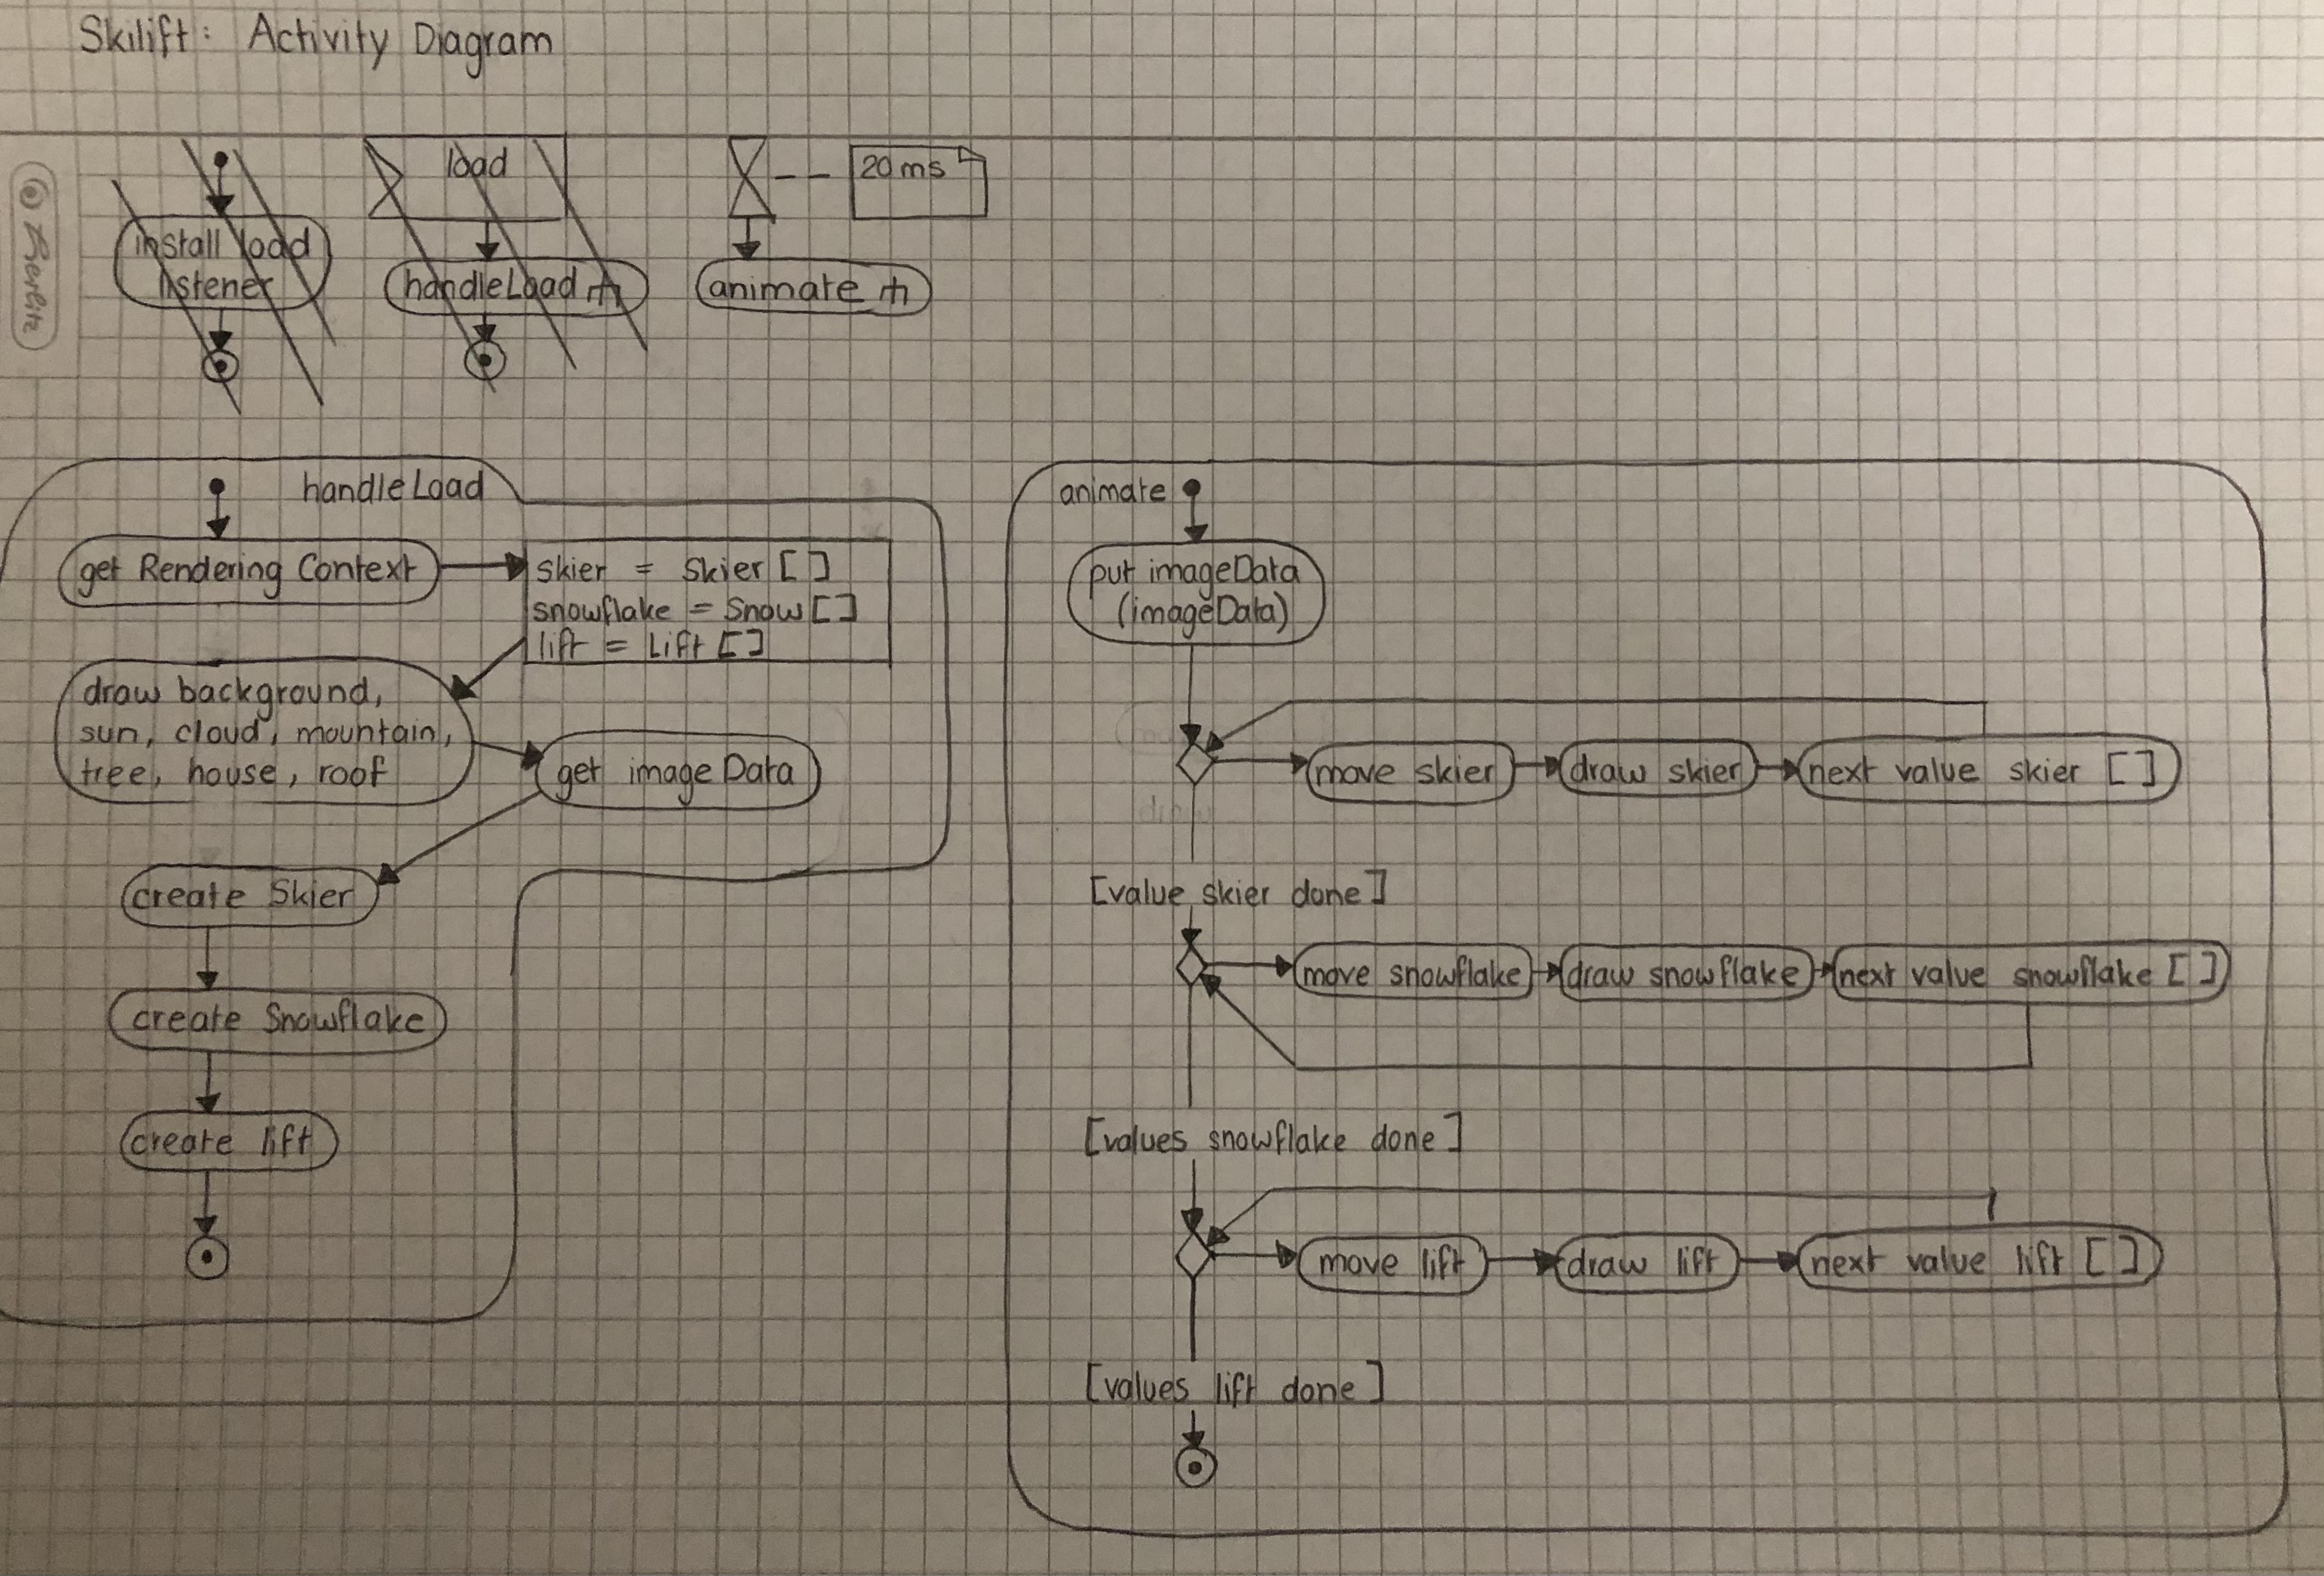 Skilift: Activity Diagram
install load
listener
load
handleLoad
20 ms
animate
handleLoad
get Rendering Context
skier = Skier []
snowflake = Snow []
lift = Lift []
draw background,
sun, cloud, mountain,
tree, house, roof
get imageData
create Skier
create Snowflake
create lift
animate
put imageData
(imageData)
move skier
draw skier
next value skier []
[value skier done]
move snowflake
draw snowflake
next value snowflake []
[values snowflake done]
move lift
draw lift
next value lift []
[values lift done]